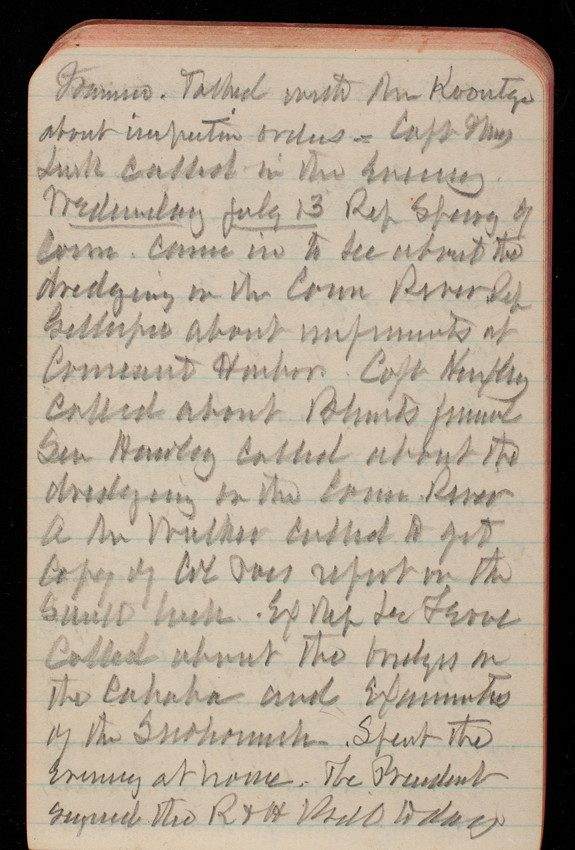 Talked with Mr Koontze
about inspection orders = Capt Thos
called in the Evening.
Wednesday July 13 Rep Sperry of
Conn. came in to see about the
dredging in the Conn River Rep
about improments at
Harbor. Capt
called about Blunts funeral
Sen Hawley called about the
dredging in the Conn River
A Mr Walker called to get
Copy of Col report on the
lock. Ex Rep
Called about the bridges on
the Cahaba and Examination
of the Snohomish. Spent the
Evening at home. The President
signed the R & H Bill today